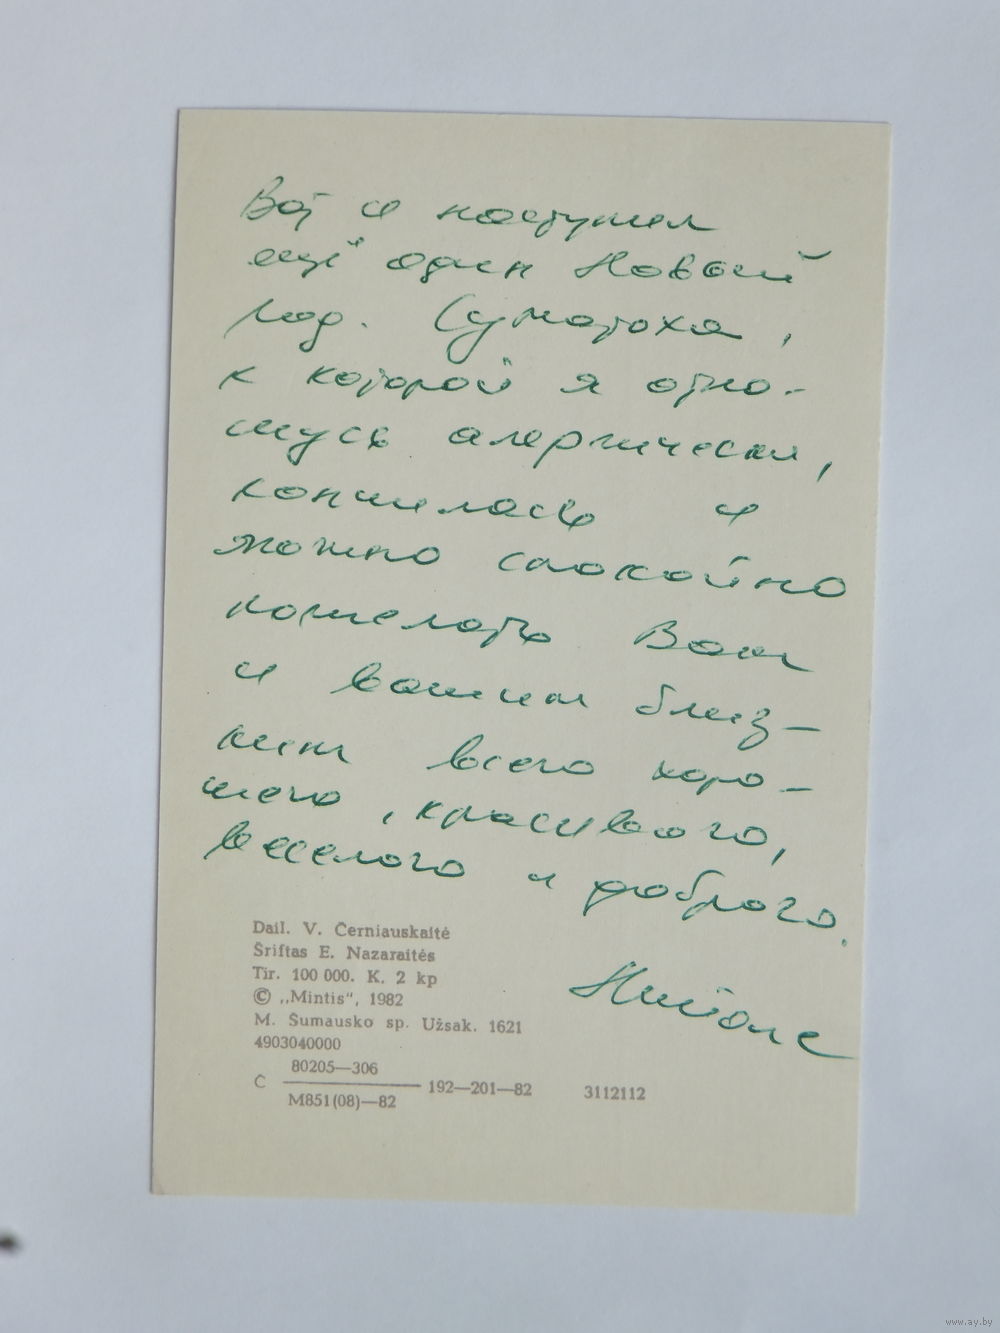 Вот и наступил
ещё один Новый
год. Суматоха,
к которой я отно-
шусь алергически,
кончилась и
можно спокойно
пожелать Вам
и вашим близ-
ким всего хоро-
шего, красивого,
веселого и доброго.
Dail. V. Černiauskaitė
Šriftas E. Nazaraitės
Tir. 100 000. K. 2 kp
© „Mintis“, 1982
M. Šumausko sp. Užsak. 1621
4903040000
С 80205—306
М851(08)—82 192—201—82 3112112
www.ay.by